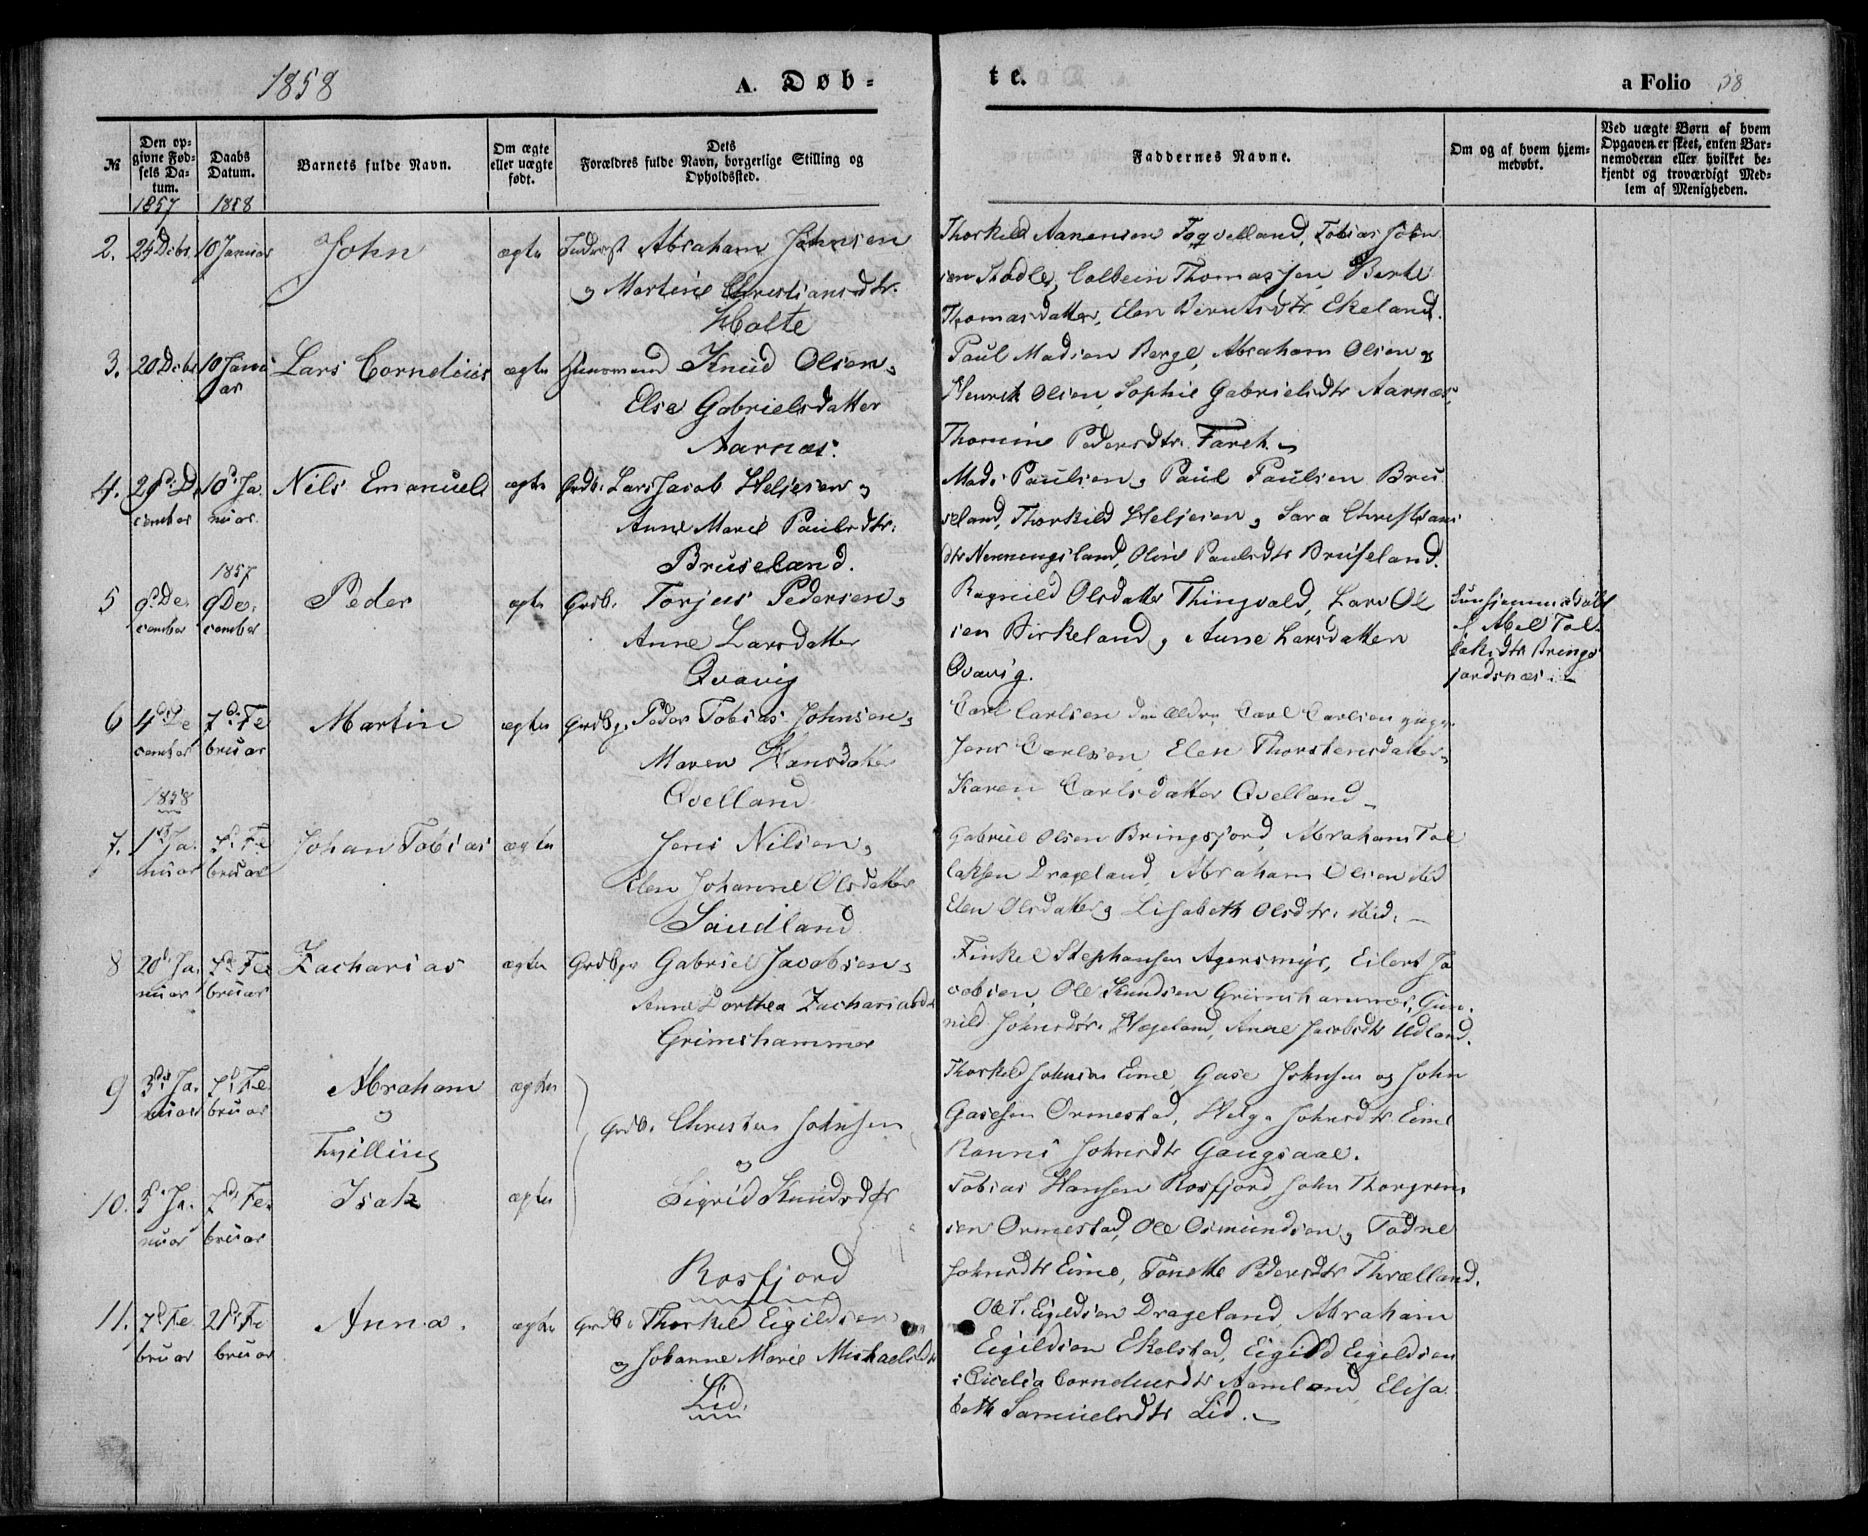 1858
A. Døb-
te.
a Folio 58
№
Den op-
givne Fød-
sels Da-
tum.
Daabs
Datum.
Barnets fulde Navn.
Om ægte
eller uægte
født.
Dets
Forældres fulde Navn, borgerlige Stilling og
Opholdssted.
Faddernes Navne.
Om og af hvem hjem-
medøbt.
Ved uægte Børn af hvem
Opgaven er skeet, enten Bar-
nemoderen eller hvilket be-
kjendt og troværdigt Med-
lem af Menigheden.
1857 1858
2. 25 Decbr. 10 Januar John ægte Inderst Abraham Johnsen
og Martine Christiansdtr.
Holte
Thorkild Aanensen Foqvelland, Tobias John
sen Stødle, Colbein Thomassen, Berte
Thomasdatter, Elen Berntsdtr Ekeland.
3. 20 Decbr 10 Janu
ar
Lars Cornelius ægte Huusmand Knud Olsen,
Else Gabrielsdatter
Aarnæs.
Paul Madsen Berge, Abraham Olsen og
Henrik Olsen, Sophie Gabrielsdtr Aarnæs,
Thomine Pedersdtr. Fareth
4. 29d De
cember
10d Ja
nuar.
Nils Emanuel ægte Grdb. Lars Jacob Heljesen og
Anne Marie Paulsdtr.
Bruseland.
Mads Paulsen, Paul Paulsen Bru
seland, Thorkild Heljesen, Sara Christians
dtr Nenningsland, Oline Paulsdtr Bruseland.
1857
5 9d De
cember
9 De.
cember
Peder ægte Grdb. Torjus Pedersen,
Anne Larsdatter
Qvavig
Ragnild Olsdatter Thingvald, Lars Ol
sen Birkeland, Anne Larsdatter
Qvavig.
hjemmedøbt
af Abel Tol
laksdtr Brings
jordsnæs.
6 4de De
cember
7d Fe
bruar
Martin ægte Grdbg. Peder Tobias Johnsen,
Maren Hansdatter
Qvelland.
Carl Carlsen den Ældre, Carl Carlsen yngre
Jens Carlsen, Elen Thorstensdatter
Karen Carlsdatter Qvelland
1858
7. 1st Ja.
nuar
7d Fe
bruar
Johan Tobias ægte Jens Nilsen,
Elen Johanne Olsdatter
Saudland
Gabriel Olsen Bringsjord, Abraham Tol
laksen Drageland, Abraham Olsen ibid
Elen Olsdatter, Lisabeth Olsdtr. ibid.
8 20d Ja.
nuar
7d Fe
bruar
Zacharias ægte Grdbgr Gabriel Jacobsen,
Anne Dorthea Zachariasdtr
Grimshammer
Finkel Stephansen Agersmyr, Eilert Ja
cobsen, Ole Knudsen Grimshammer, Gun.
nild Johnsdtr. Hægeland, Anne Jacobsdtr Udland.
9 3die Ja.
nuar
7d Fe.
bruar
Abraham
og
Tvilling
ægte
Grdb. Christen Johnsen
og
Sigrid Knudsdtr
Rosfjord
Thorkild Johnsen Eime, Gase Johnsen og John
Gasesen Ormestad, Helga Johnsdtr Eime
Ranni Johnsdtr Gaugsaae.
10. 3d Ja.
nuar
7d Fe.
bruar
Isak ægte
Tobias Hansen Rosfjord John Thorgrim
sen Ormestad, Ole Osmundsen, Tadne
Johnsdtr Eime, Tonette Pedersdtr Thrælland.
11. 7d Fe
bruar
21d Fe
bruar
Anna. ægte Grdb. Thorkild Eigildsen
og Johanne Marie Michaelsdtr
Lid.
Ole T. Eigildsen Drageland, Abraham
Eigildsen Ekelstad, Eigild Eigildsen
Cicelia Corneliusdtr Aamland Elisa
beth Samuelsdtr Lid.